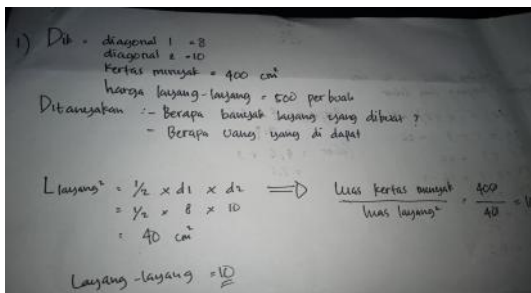 1) Dik = diagonal 1 = 8
diagonal 2 = 10
Kertas minyak = 400 cm²
harga layang-layang = 500 per buah
Ditanyakan :- Berapa banyak layang yang dibuat ?
- Berapa uang yang di dapat
L layang² = 1/2 x d1 x d2 => luas kertas minyak / luas layang² = 400 / 40 =
= 1/2 x 8 x 10
= 40 cm²
Layang-layang = 10